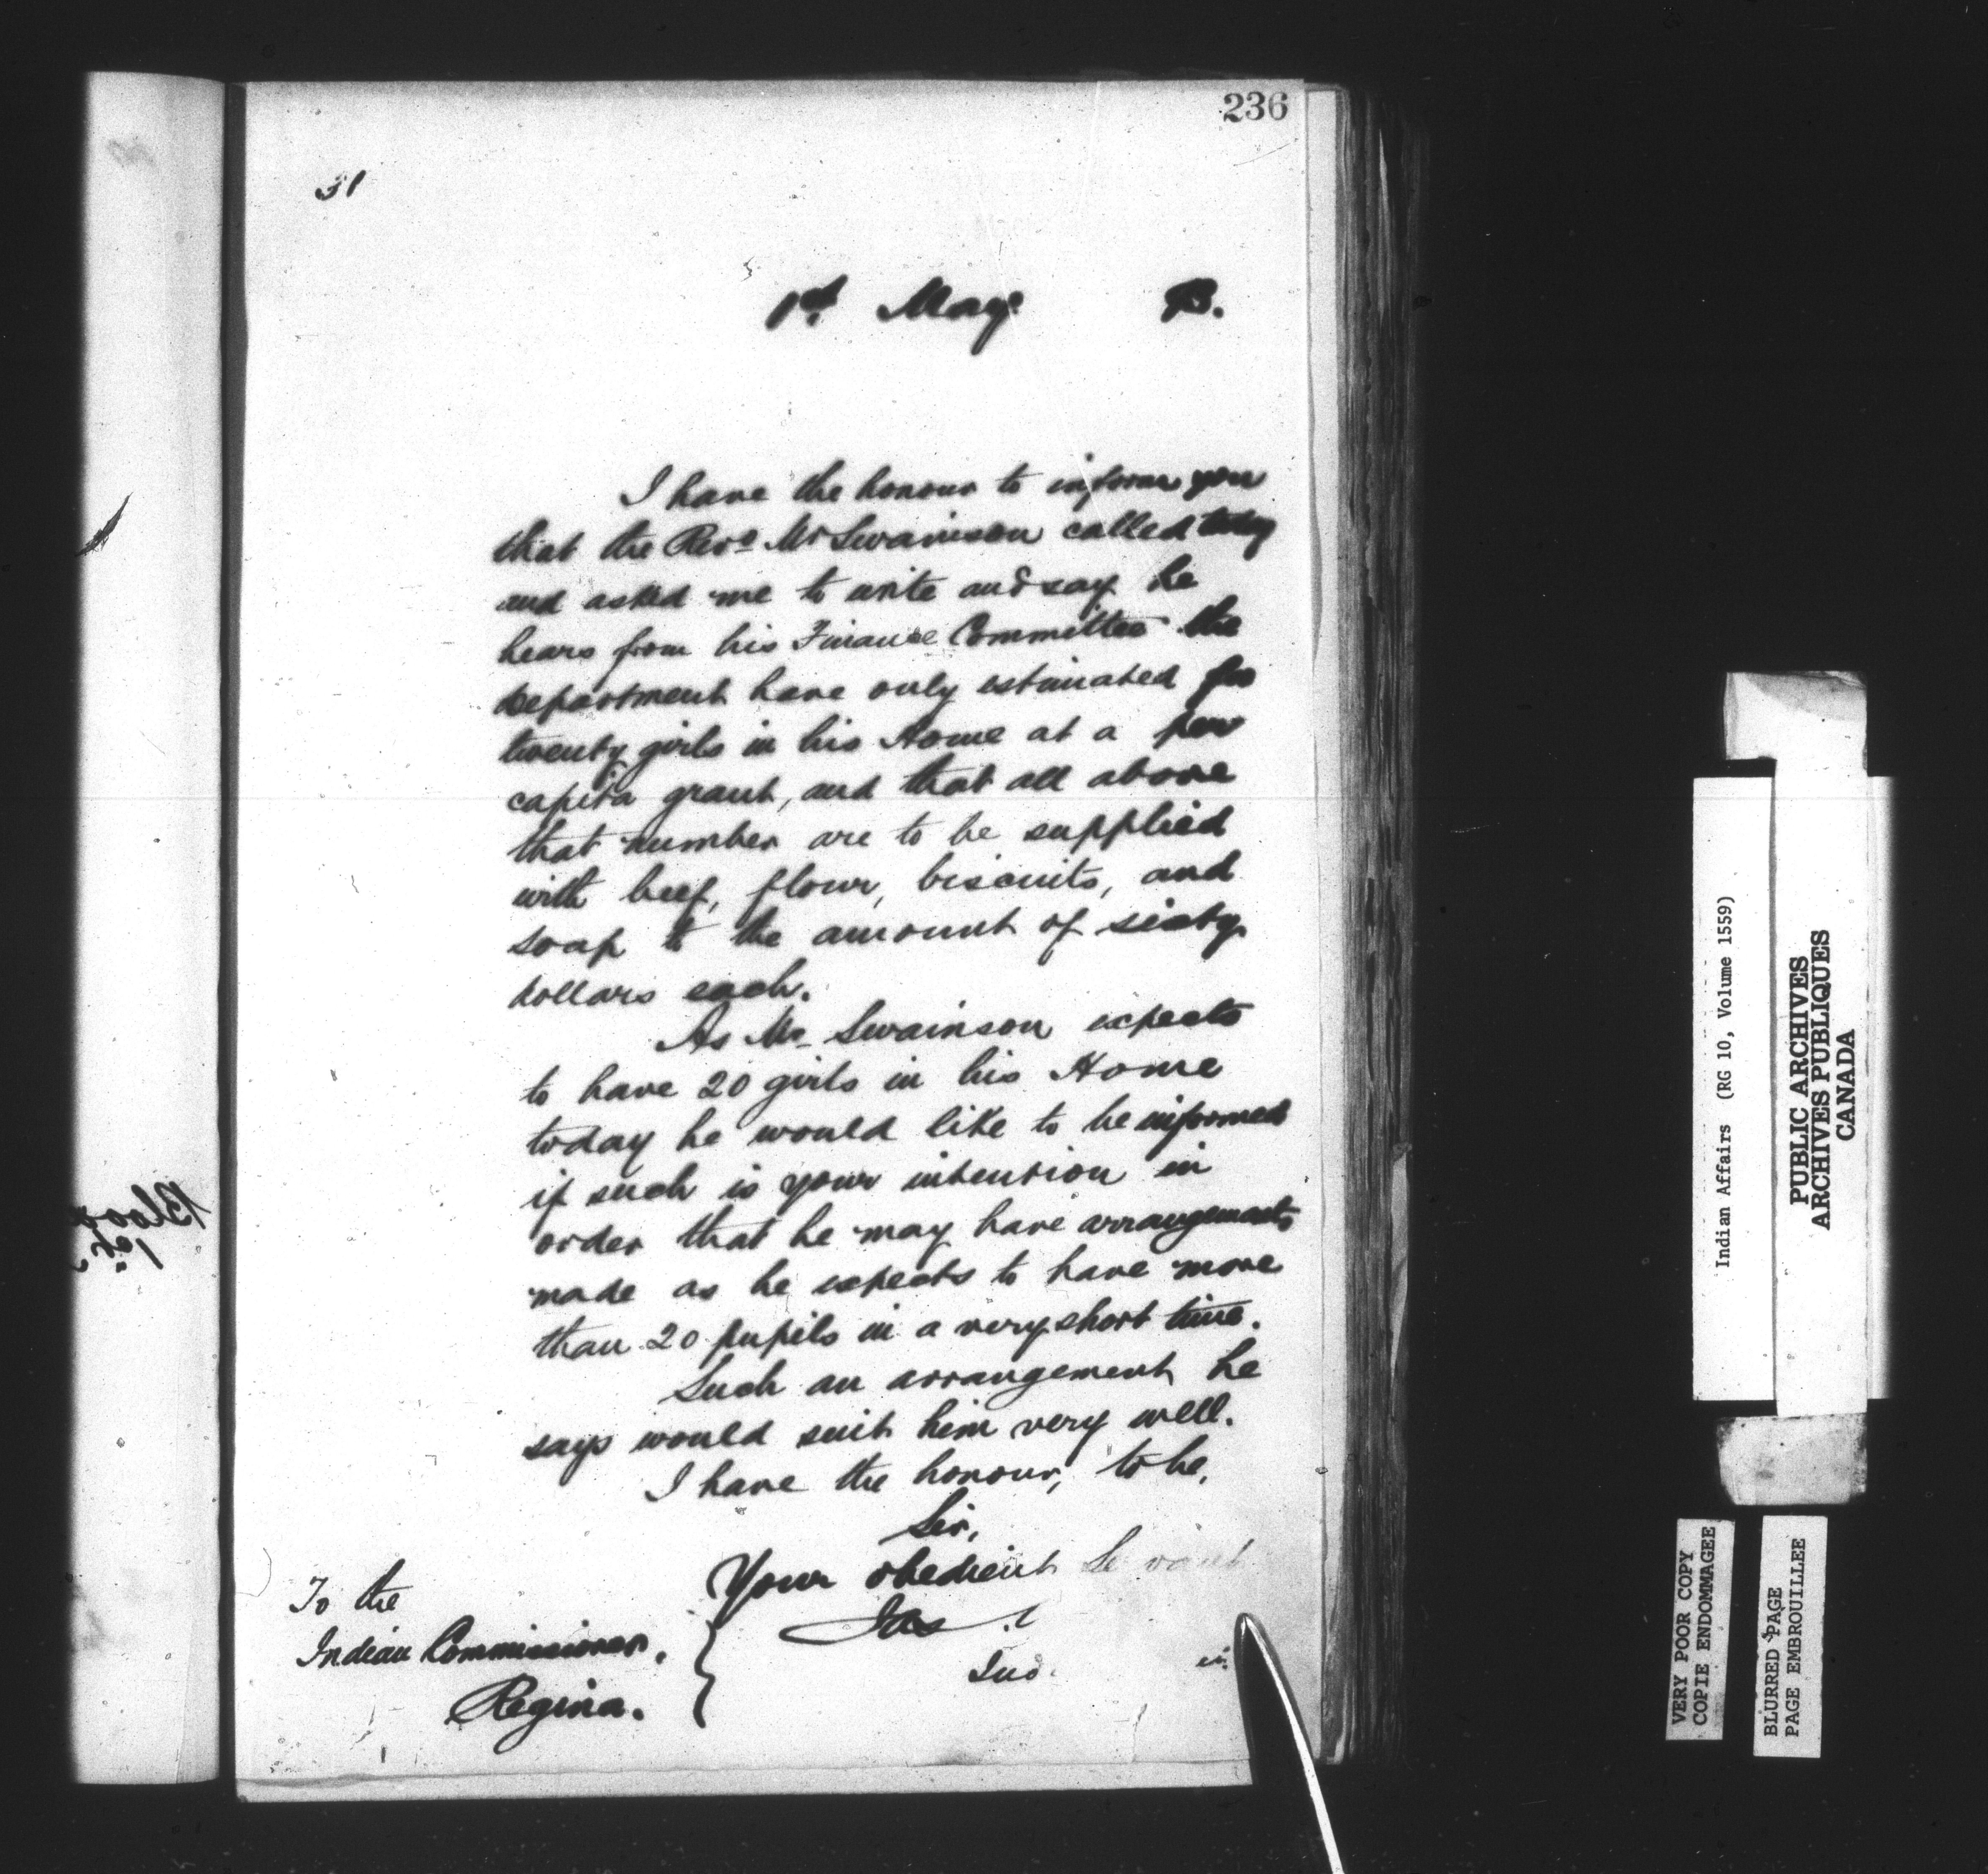 236
31
1st May 93.
I have the honour to inform you
that the Revd. Mr Swainson called today
and asked me to write and say he
hears from his Finance Committee the
department have only estimated for
twenty girls in his Home at a per
capita grant, and that all above
that number are to be supplied
with beef, flour, biscuits, and
soap to the amount of sixty
dollars each.
As Mr Swainson expects
to have 20 girls in his Home
today he would like to be informed
if such is your intention in
order that he may have arrangements
made as he expects to have more
than 20 pupils in a very short time.
Such an arrangement he
says would suit him very well.
I have the honour, to be,
Sir,
Your obedient Servant
Jas
Ind.
To the
Indian Commissioner,
Regina.
Indian Affairs (RG 10, Volume 1559)
PUBLIC ARCHIVES
ARCHIVES PUBLIQUES
CANADA
VERY POOR COPY
COPIE ENDOMMAGEE
BLURRED PAGE
PAGE EMBROUILLEE